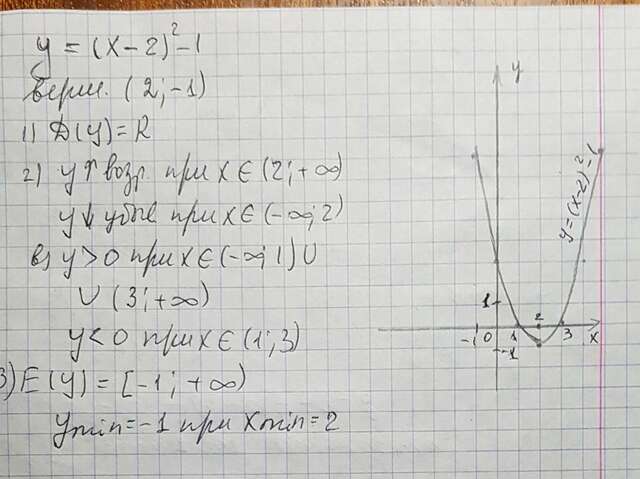 y = (x-2)²-1
верш. (2;-1)
1) D(y)=R
2) y↑ возр. при x∈(2;+∞)
y↓ убыв при x∈(-∞;2)
в) y>0 при x∈(-∞;1)∪
∪ (3;+∞)
y<0 при x∈(1;3)
3) E(y)=[-1;+∞)
ymin=-1 при xmin=2
y
y=(x-2)²-1
1
2
-1 0 1 3 x
-1